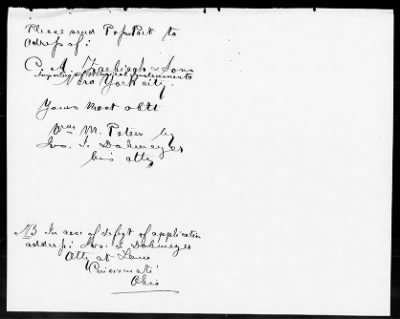 Please send Pass Port to
adress of:
C. A. Zoebisch & Sons
Importers of Musical Instruments
New York city.
Yours Most obt
Wm M. Peters by
Jos. L. Dahmeyer
his atty
NB In case of defect of application
address: Jos. L. Dahmeyer
Atty at Law
Cincinnati
Ohio